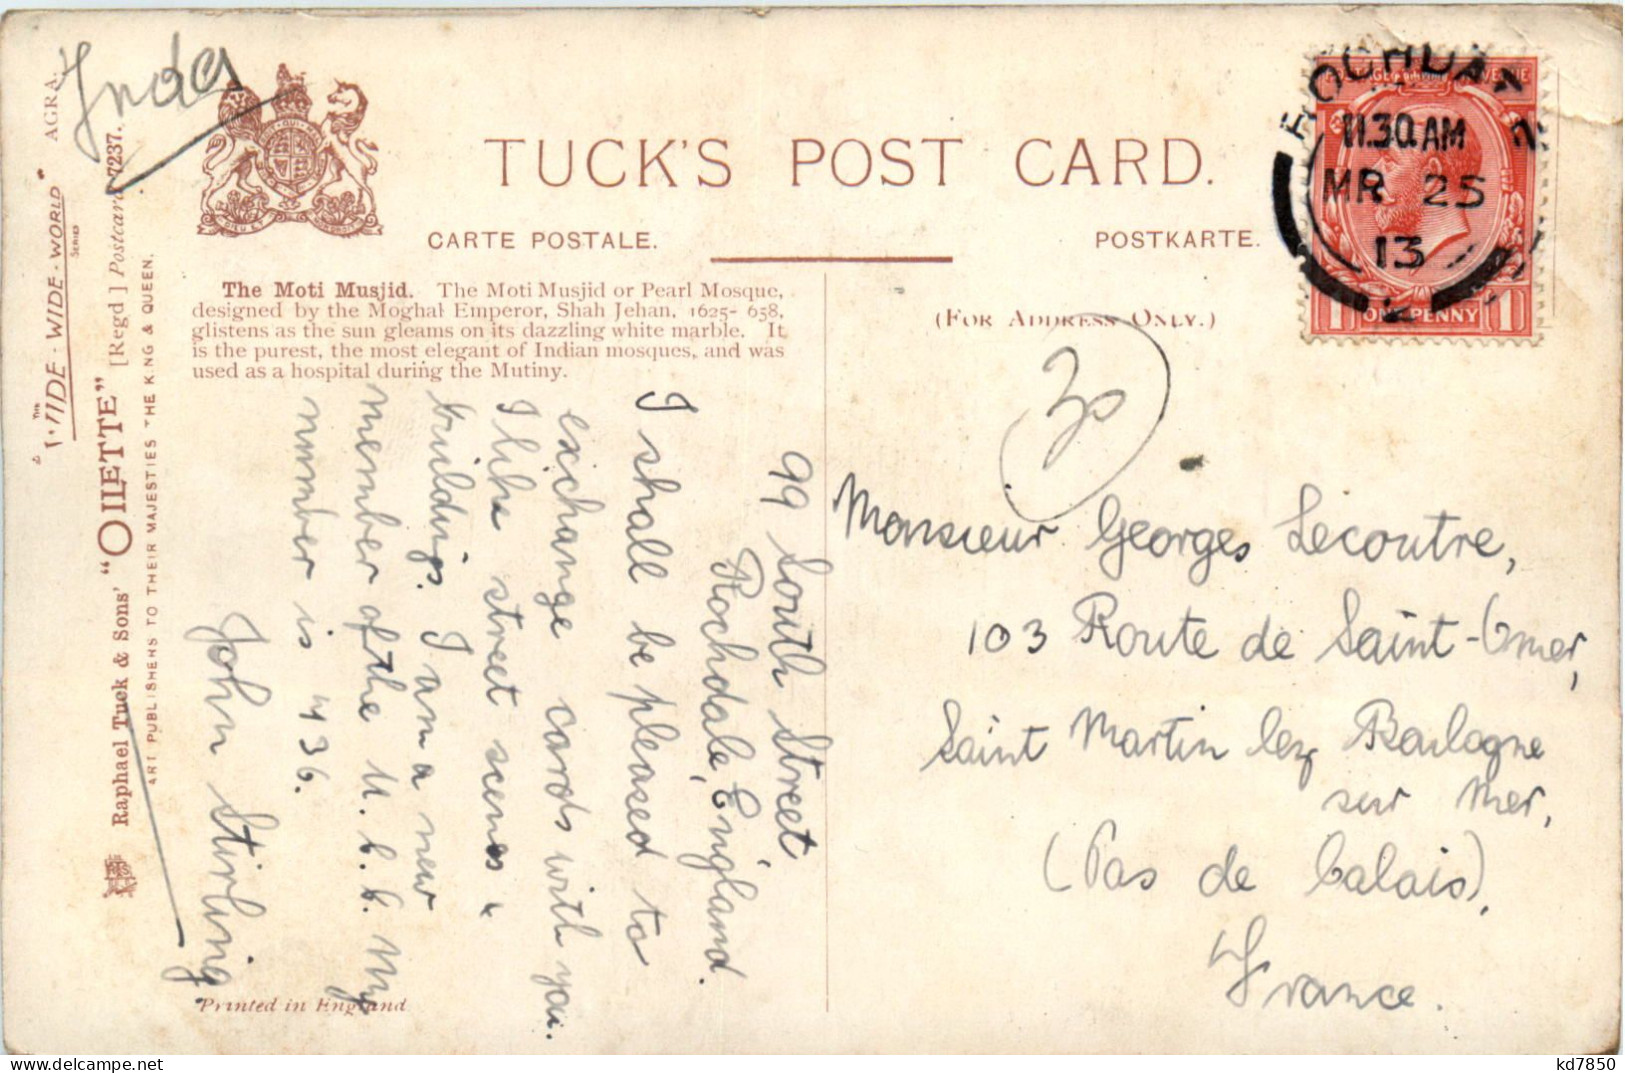 India
AGRA.
THE
WIDE-WIDE-WORLD
SERIES
Raphael Tuck & Sons' "OILETTE" [Regd] Postcard 7237.
ART PUBLISHERS TO THEIR MAJESTIES THE KING & QUEEN.
DIEU ET
TUCK'S POST CARD.
CARTE POSTALE.
POSTKARTE.
The Moti Musjid. The Moti Musjid or Pearl Mosque,
designed by the Moghal Emperor, Shah Jehan, 1625-658,
glistens as the sun gleams on its dazzling white marble. It
is the purest, the most elegant of Indian mosques, and was
used as a hospital during the Mutiny.
(FOR ADDRESS ONLY.)
99 South Street,
Rochdale, England.
I shall be pleased to
exchange cards with you.
I like street scenes &
buildings. I am a new
member of the U. C. C. My
number is 4936.
John Stirling.
Printed in England
30
Monsieur Georges Lecoutre,
103 Route de Saint-Omer,
Saint Martin lez Boulogne
sur Mer,
(Pas de Calais),
France.
POSTAGE REVENUE
ONE PENNY
1 1
ROCHDALE
11.30 AM
MR 25
13
kd7850